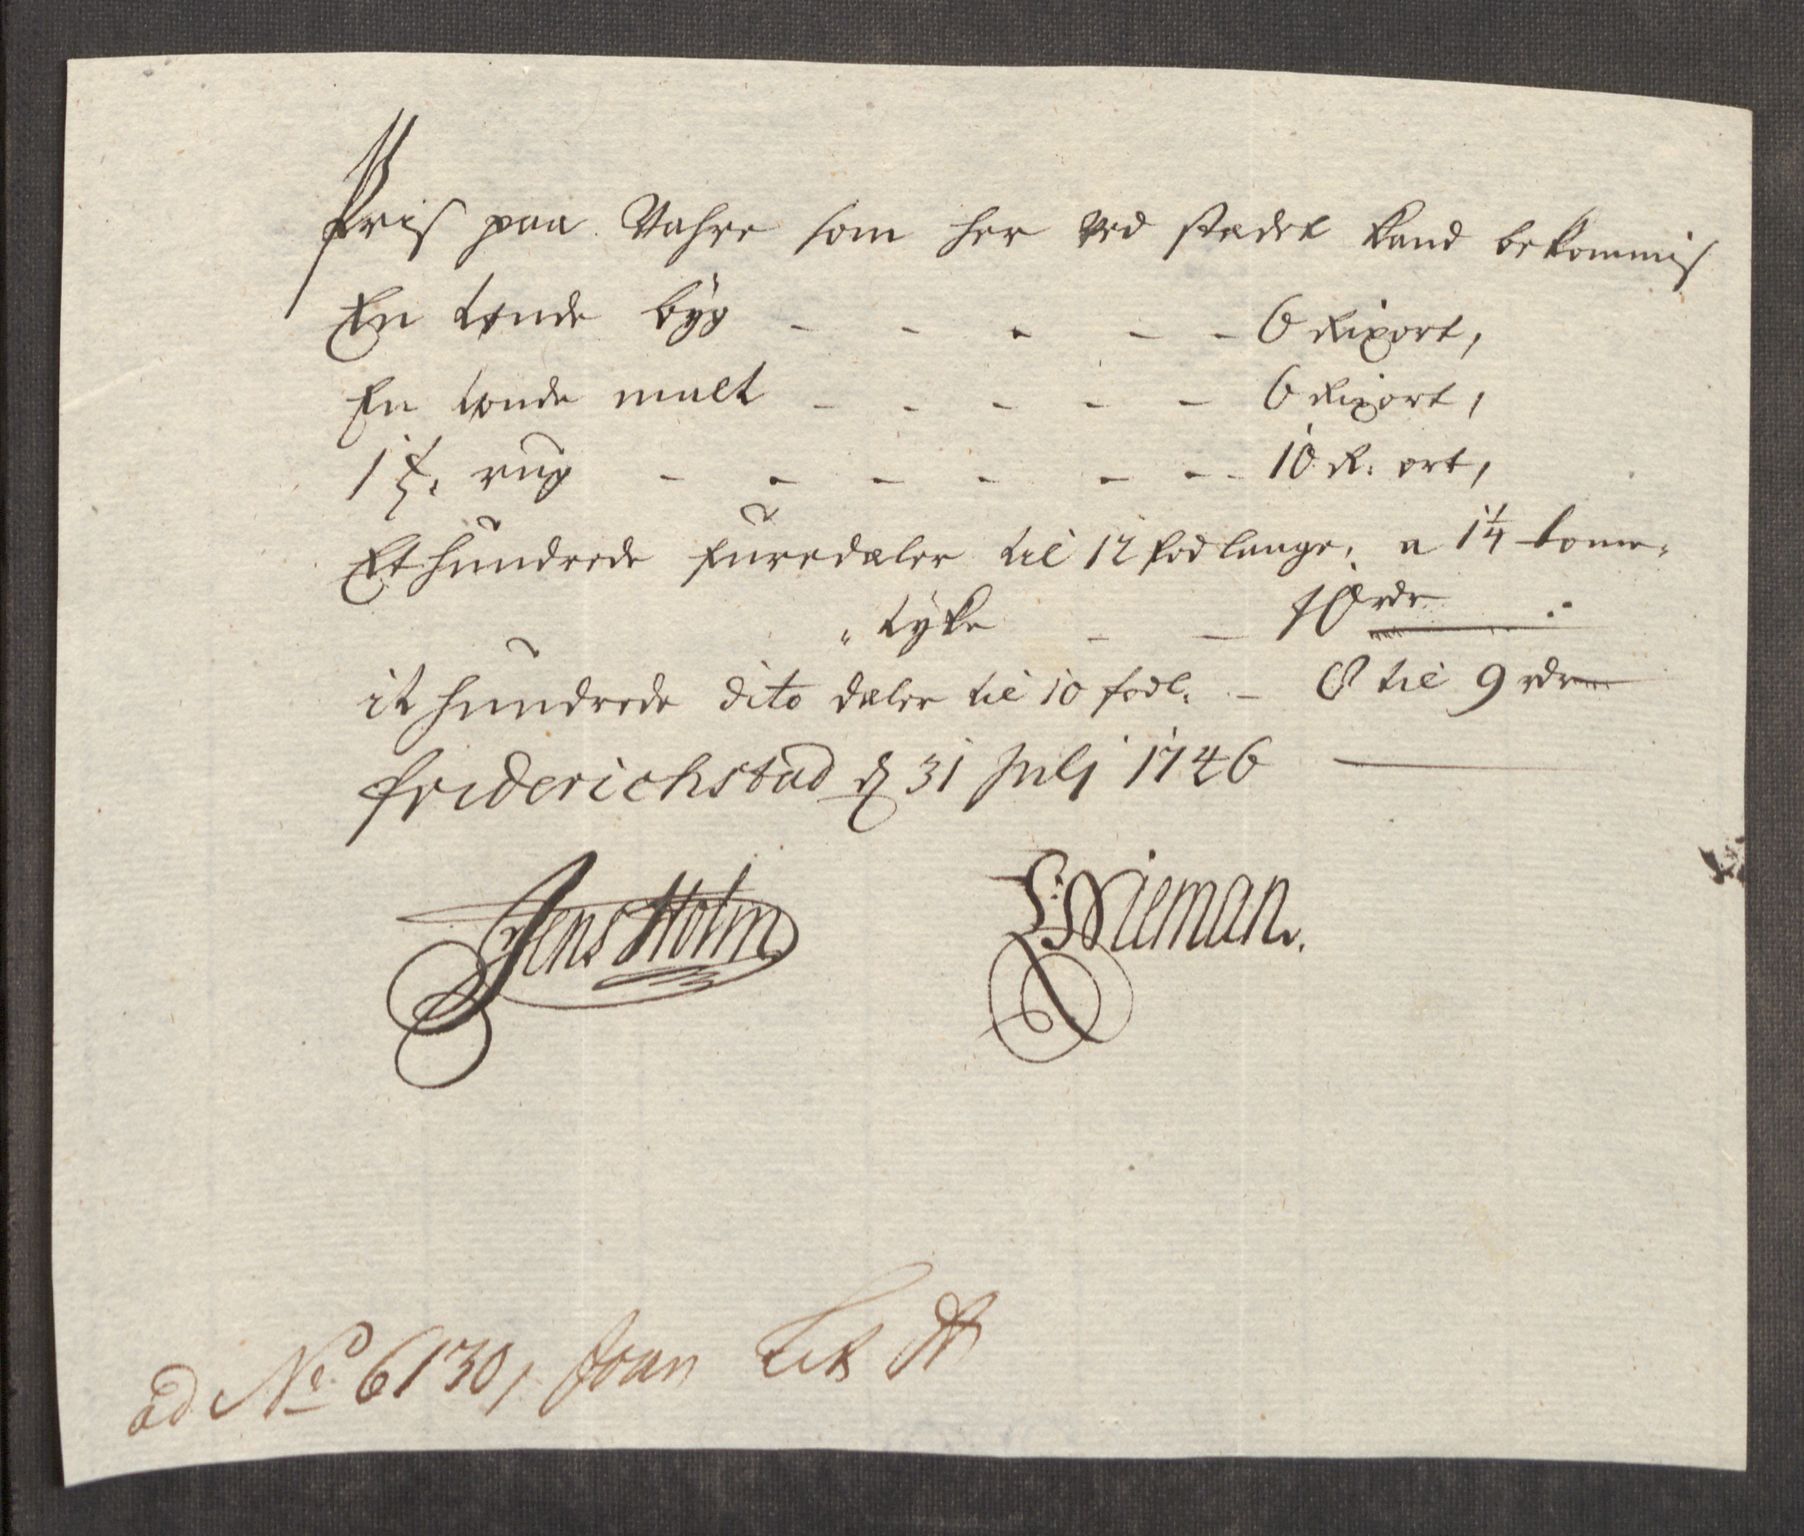 Pris paa Vahre som her ved stædet kand bekommis
En tønde byg - - - - - 6 Rixort,
En tønde malt - - - - - 6 Rixort,
1 t. rug - - - - - - 10 R. ort,
Et hundrede furedæler til 12 fod lange, a 1¼ tome
tyke - - 10 rdr
it hundrede dito dæler til 10 fodl. - 8 til 9 rdr
friderichstad d 31 Julj 1746
Jens Holm Wieman.
ad No 6130,